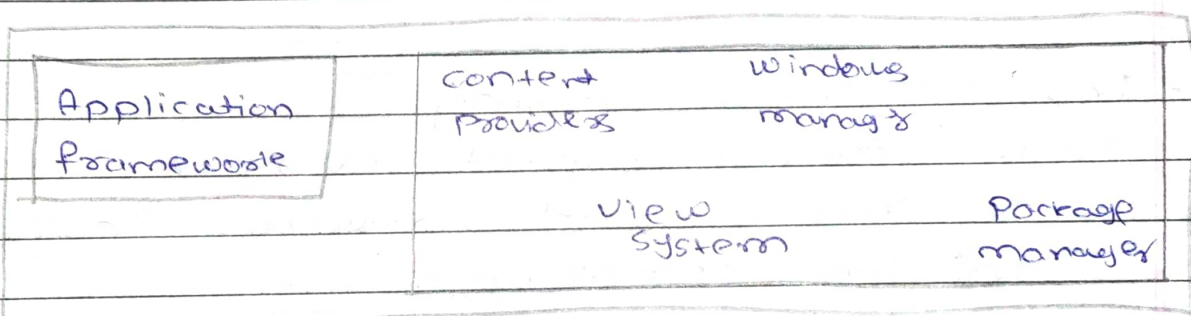 Application
framework
content
Providers
Windows
manager
View
System
Package
manager